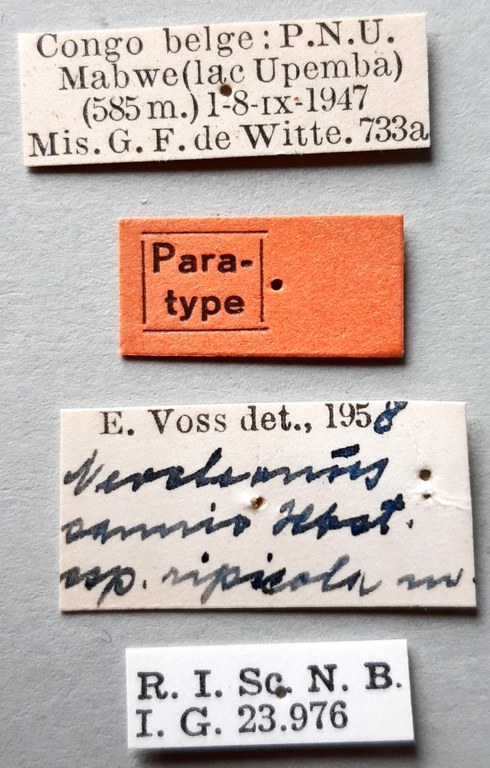 Congo belge : P.N.U.
Mabwe (lac Upemba)
(585 m.) 1-8-IX-1947
Mis. G. F. de Witte. 733a
Para-
type
E. Voss det., 1958
sannio Hbst.
ssp. ripicola m.
R. I. Sc. N. B.
I. G. 23.976